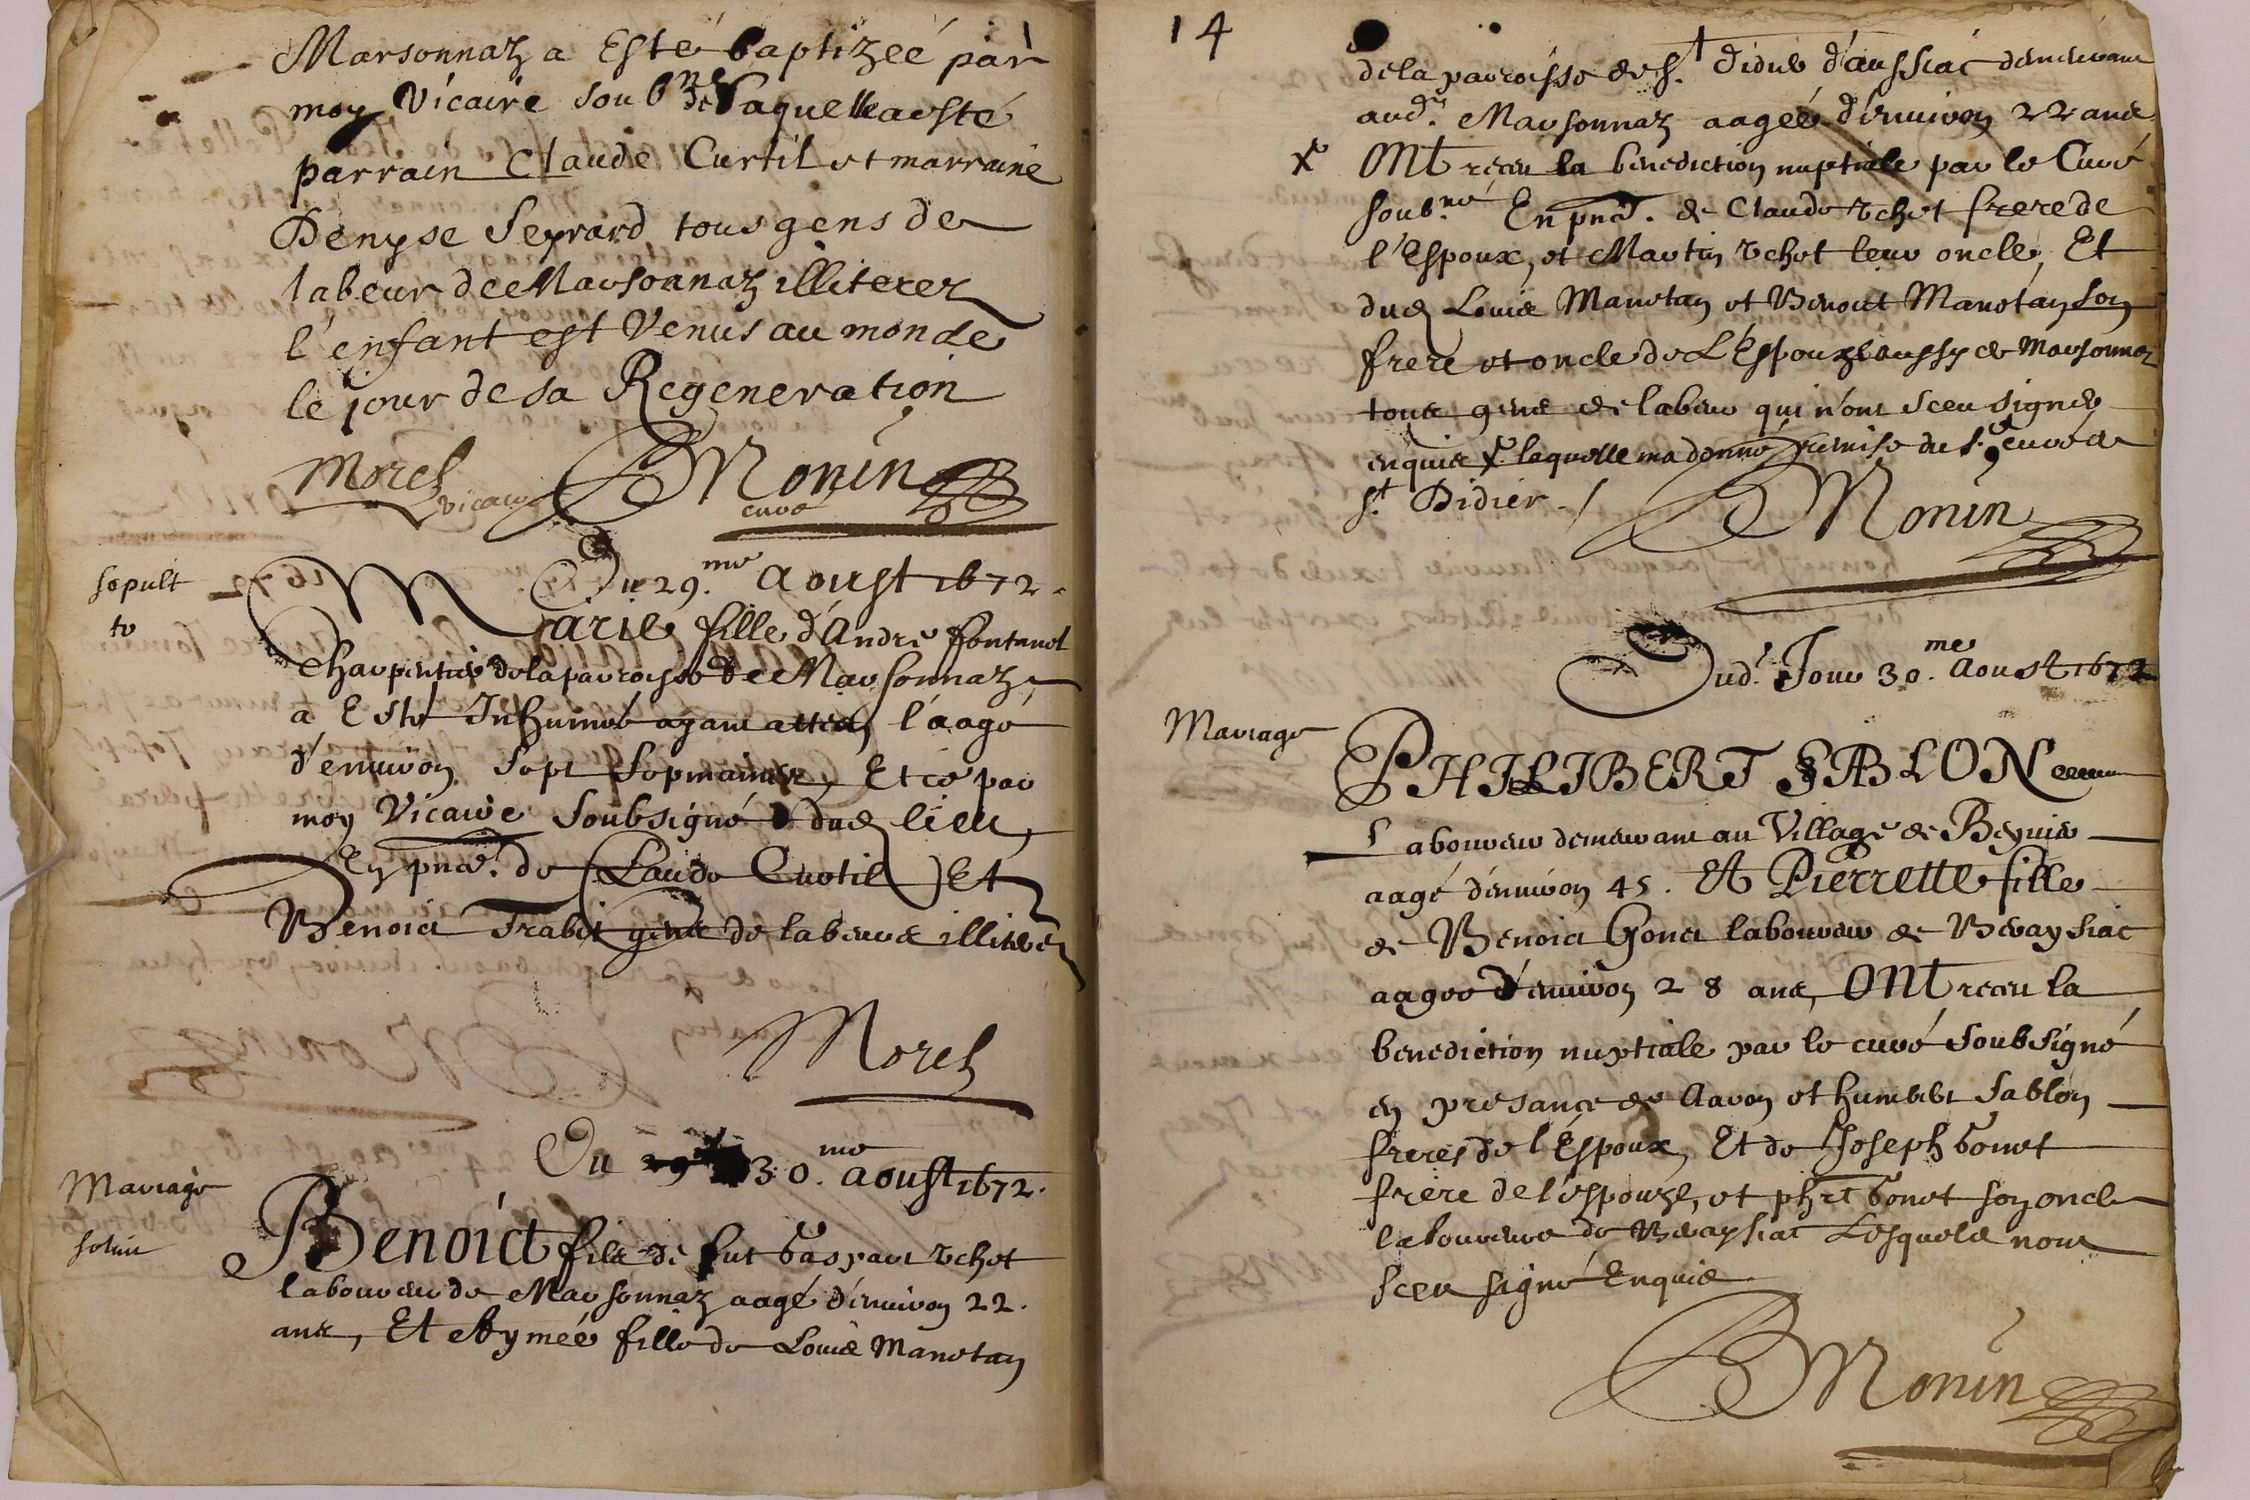 Marsonnaz a Esté baptizeé par
moy Vicaire soub.né de Laquelle a esté
parrain Claude Curtil et marraine
Denyse Seyrard tous gens de
labeur de Marsonnaz illiterez
l'enfant est Venus au monde
le jour de sa Regeneration
Morel vicaire BMonin curé
sepult
te
Du 29.me Aoust 1672.
Marie fille d'Andre fontanel
Charpentier de la parroisse de Marsonnaz
a Esté Inhumé ayant attein l'aage
d'enuiron sept sepmaines, Et ce par
moy Vicaire Soubsigné dud lieu
En pnce. de Claude Curtil Et
Benoict Trabit gens de labeurs illiterez
Morel
Du 30.me aoust 1672.
Mariage
Benoict fils de fut Gaspart Vchet
laboureur de Marsonnaz aagé d'enuiron 22.
ans, Et Aymeé fille de Louis Manetan
14
de la parroisse de S.t Didier d'aussiac demeurant
aud.t Marsonnaz aageé d'enuiron 22 ans
X ONt receu la benediction nuptiale par le Curé
soub.né En pnce. de Claude Vchet frere de
l'Espoux, et Martin Vchet leur oncle, Et
dud Louis Manetan et Benoict Manetan son
frere et oncle de L'Espouze aussy de Marsonnaz
tous gens de labeur qui n'ont sceu signer
enquis X laquelle ma donné remise du S.r curé de
S.t Didier
BMonin
Dud.t Jour 30.me Aoust 1672
Mariage
PHILIBERT SABLON
Laboureur demeurant au Village de Beyuier
aagé d'enuiron 45. Et Pierrette fille
de Benoict Gonet laboureur de Bevaysiac
aageé d'enuiron 28 ans, ONt receu la
benediction nuptiale par le curé Soubsigné
en presance de Aaron et humbert Sablon
freres de l'Espoux, Et de Joseph Gonet
frere de l'espouze, et phrt Gonet son oncle
laboureurs de Bevaysiac Lesquels nont
sceu signé Enquis
BMonin